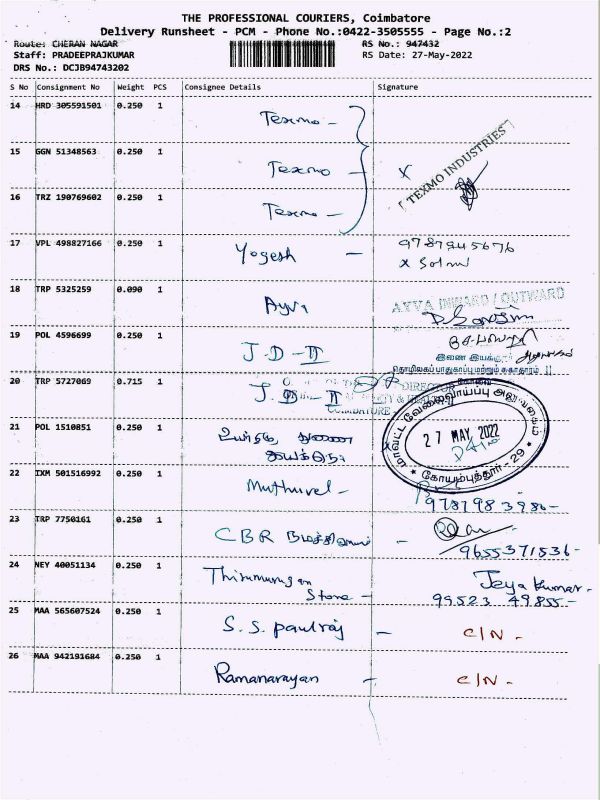 THE PROFESSIONAL COURIERS, Coimbatore
Delivery Runsheet - PCM - Phone No.:0422-3505555 - Page No.:2
Route: CHERAN NAGAR
RS No.: 947432
Staff: PRADEEPRAJKUMAR
RS Date: 27-May-2022
DRS No.: DCJB94743202
S No Consignment No Weight PCS Consignee Details Signature
14 HRD 305591501 0.250 1 Texmo -
15 GGN 51348563 0.250 1 Texmo - X
TEXMO INDUSTRIES
16 TRZ 190769602 0.250 1 Texmo -
17 VPL 498827166 0.250 1 Yogesh -
18 TRP 5325259 0.090 1 Ayva AYVA INWARD / OUTWARD
19 POL 4596699 0.250 1 J.D - II
20 TRP 5727069 0.715 1 J.D - II
DIRECTOR
COIMBATORE
21 POL 1510851 0.250 1
மாவட்ட வேலைவாய்ப்பு அலுவலகம்
27 MAY 2022
கோயம்புத்தூர் - 29
22 IXM 501516992 0.250 1 Muthuvel -
23 TRP 7750161 0.250 1 CBR
9655371536-
24 NEY 40051134 0.250 1 Thirumurugan Jeya Kumar-
Stone - 99523 49855-
25 MAA 565607524 0.250 1 S.S. Paulraj - C/N -
26 MAA 942191684 0.250 1 Ramanarayan - C/N -